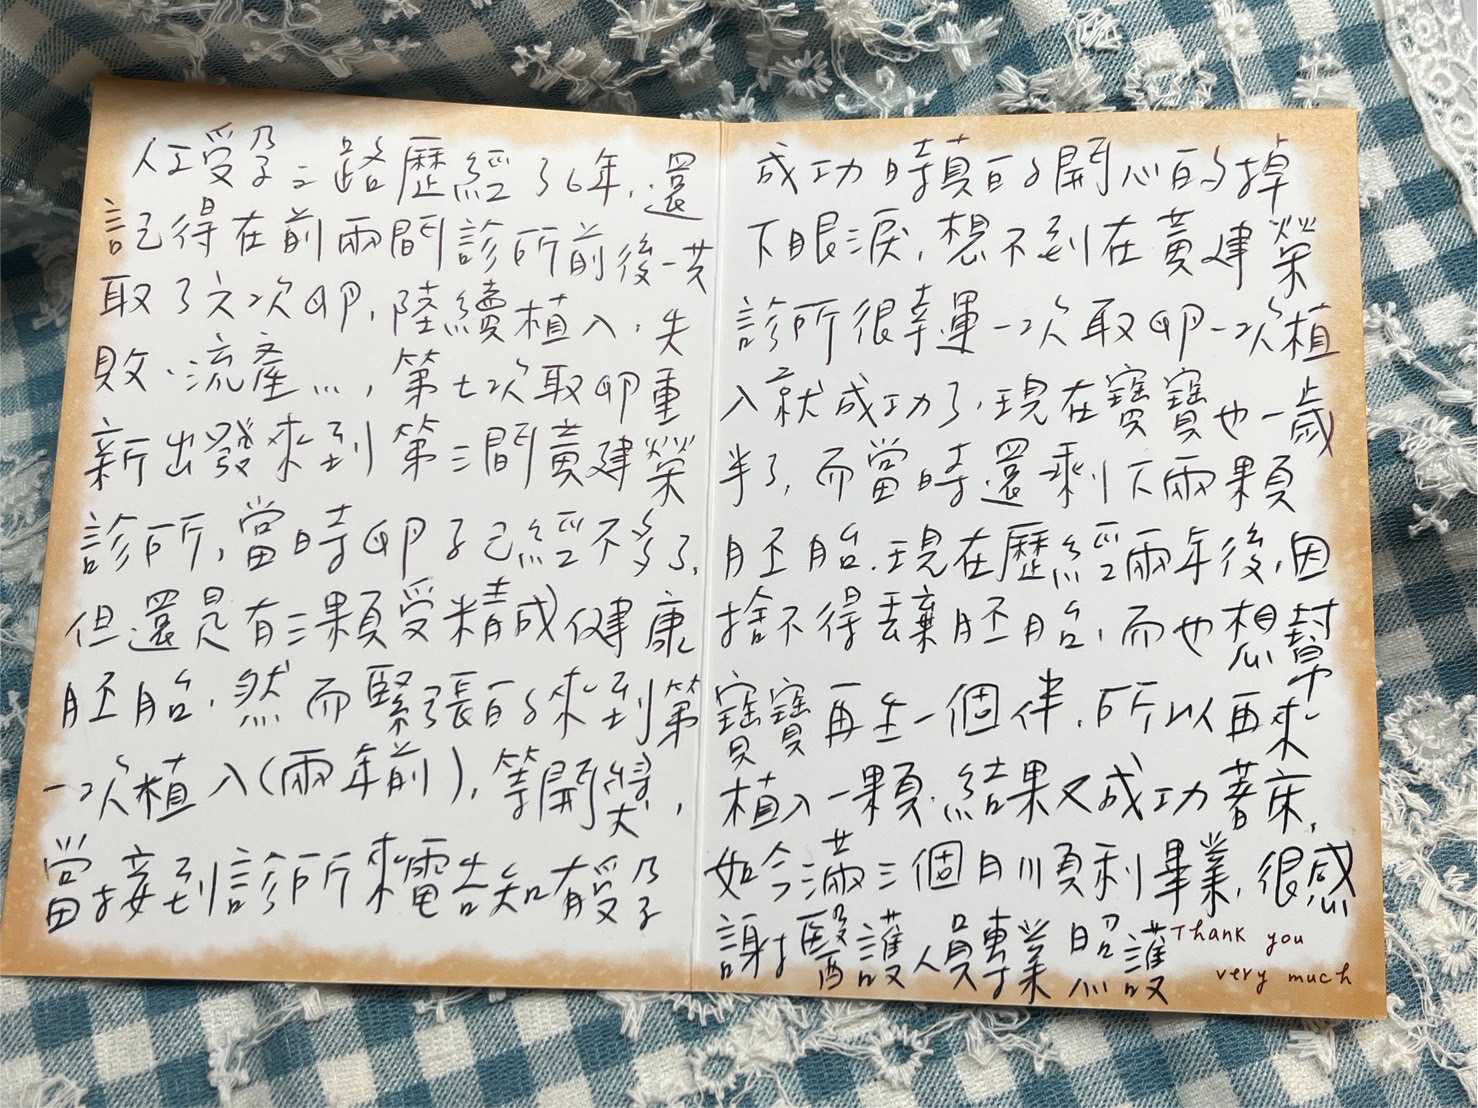 人工受孕之路歷經了6年,還
記得在前兩間診所前後一共
取了六次卵,陸續植入、失
敗、流產...,第七次取卵重
新出發來到第三間黃建榮
診所,當時卵子已經不多了,
但還是有三顆受精成健康
胚胎,然而緊張的來到第
一次植入(兩年前),等開獎,
當接到診所來電告知有受孕
成功時真的開心的掉
下眼淚,想不到在黃建榮
診所很幸運一次取卵一次植
入就成功了,現在寶寶也一歲
半了,而當時還剩下兩顆
胚胎,現在歷經兩年後,因
捨不得丟棄胚胎,而也想幫
寶寶再生一個伴,所以再來
植入一顆,結果又成功著床,
如今滿三個月順利畢業,很感
謝醫護人員專業照護
Thank you
very much